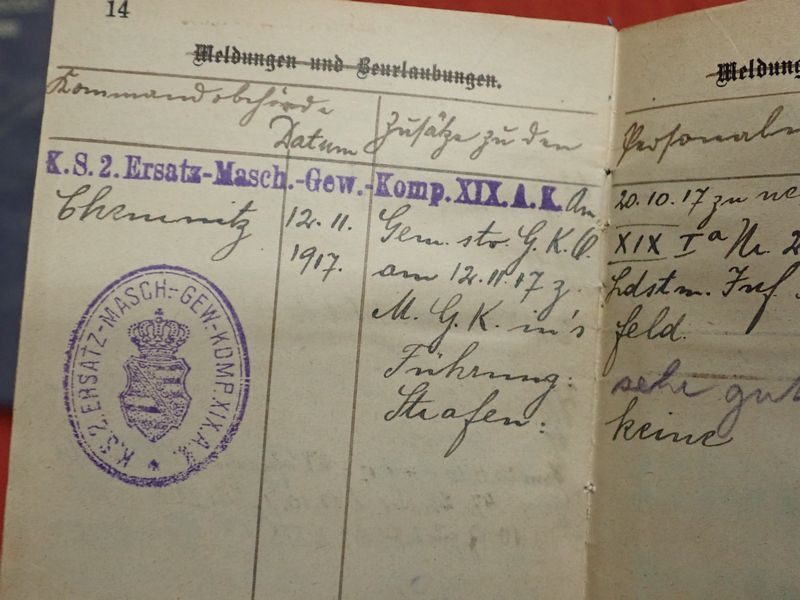 14
Meldungen und Beurlaubungen.
Meldung
Kommandobehörde
Datum
Zusätze zu den
Personal
K.S.2. Ersatz-Masch.-Gew.-Komp. XIX.A.K.
Chemnitz
12. 11.
1917.
K.S.2. ERSATZ-MASCH.-GEW.-KOMP. XIX.A.K.
An
20.10.17 zu
Gem. stv. G. K. O.
XIX Ia Nr. 2
am 12.11.17 z.
Ldstm. Inf.
M. G. K. in's
Feld.
Führung:
sehr gut
Strafen:
keine